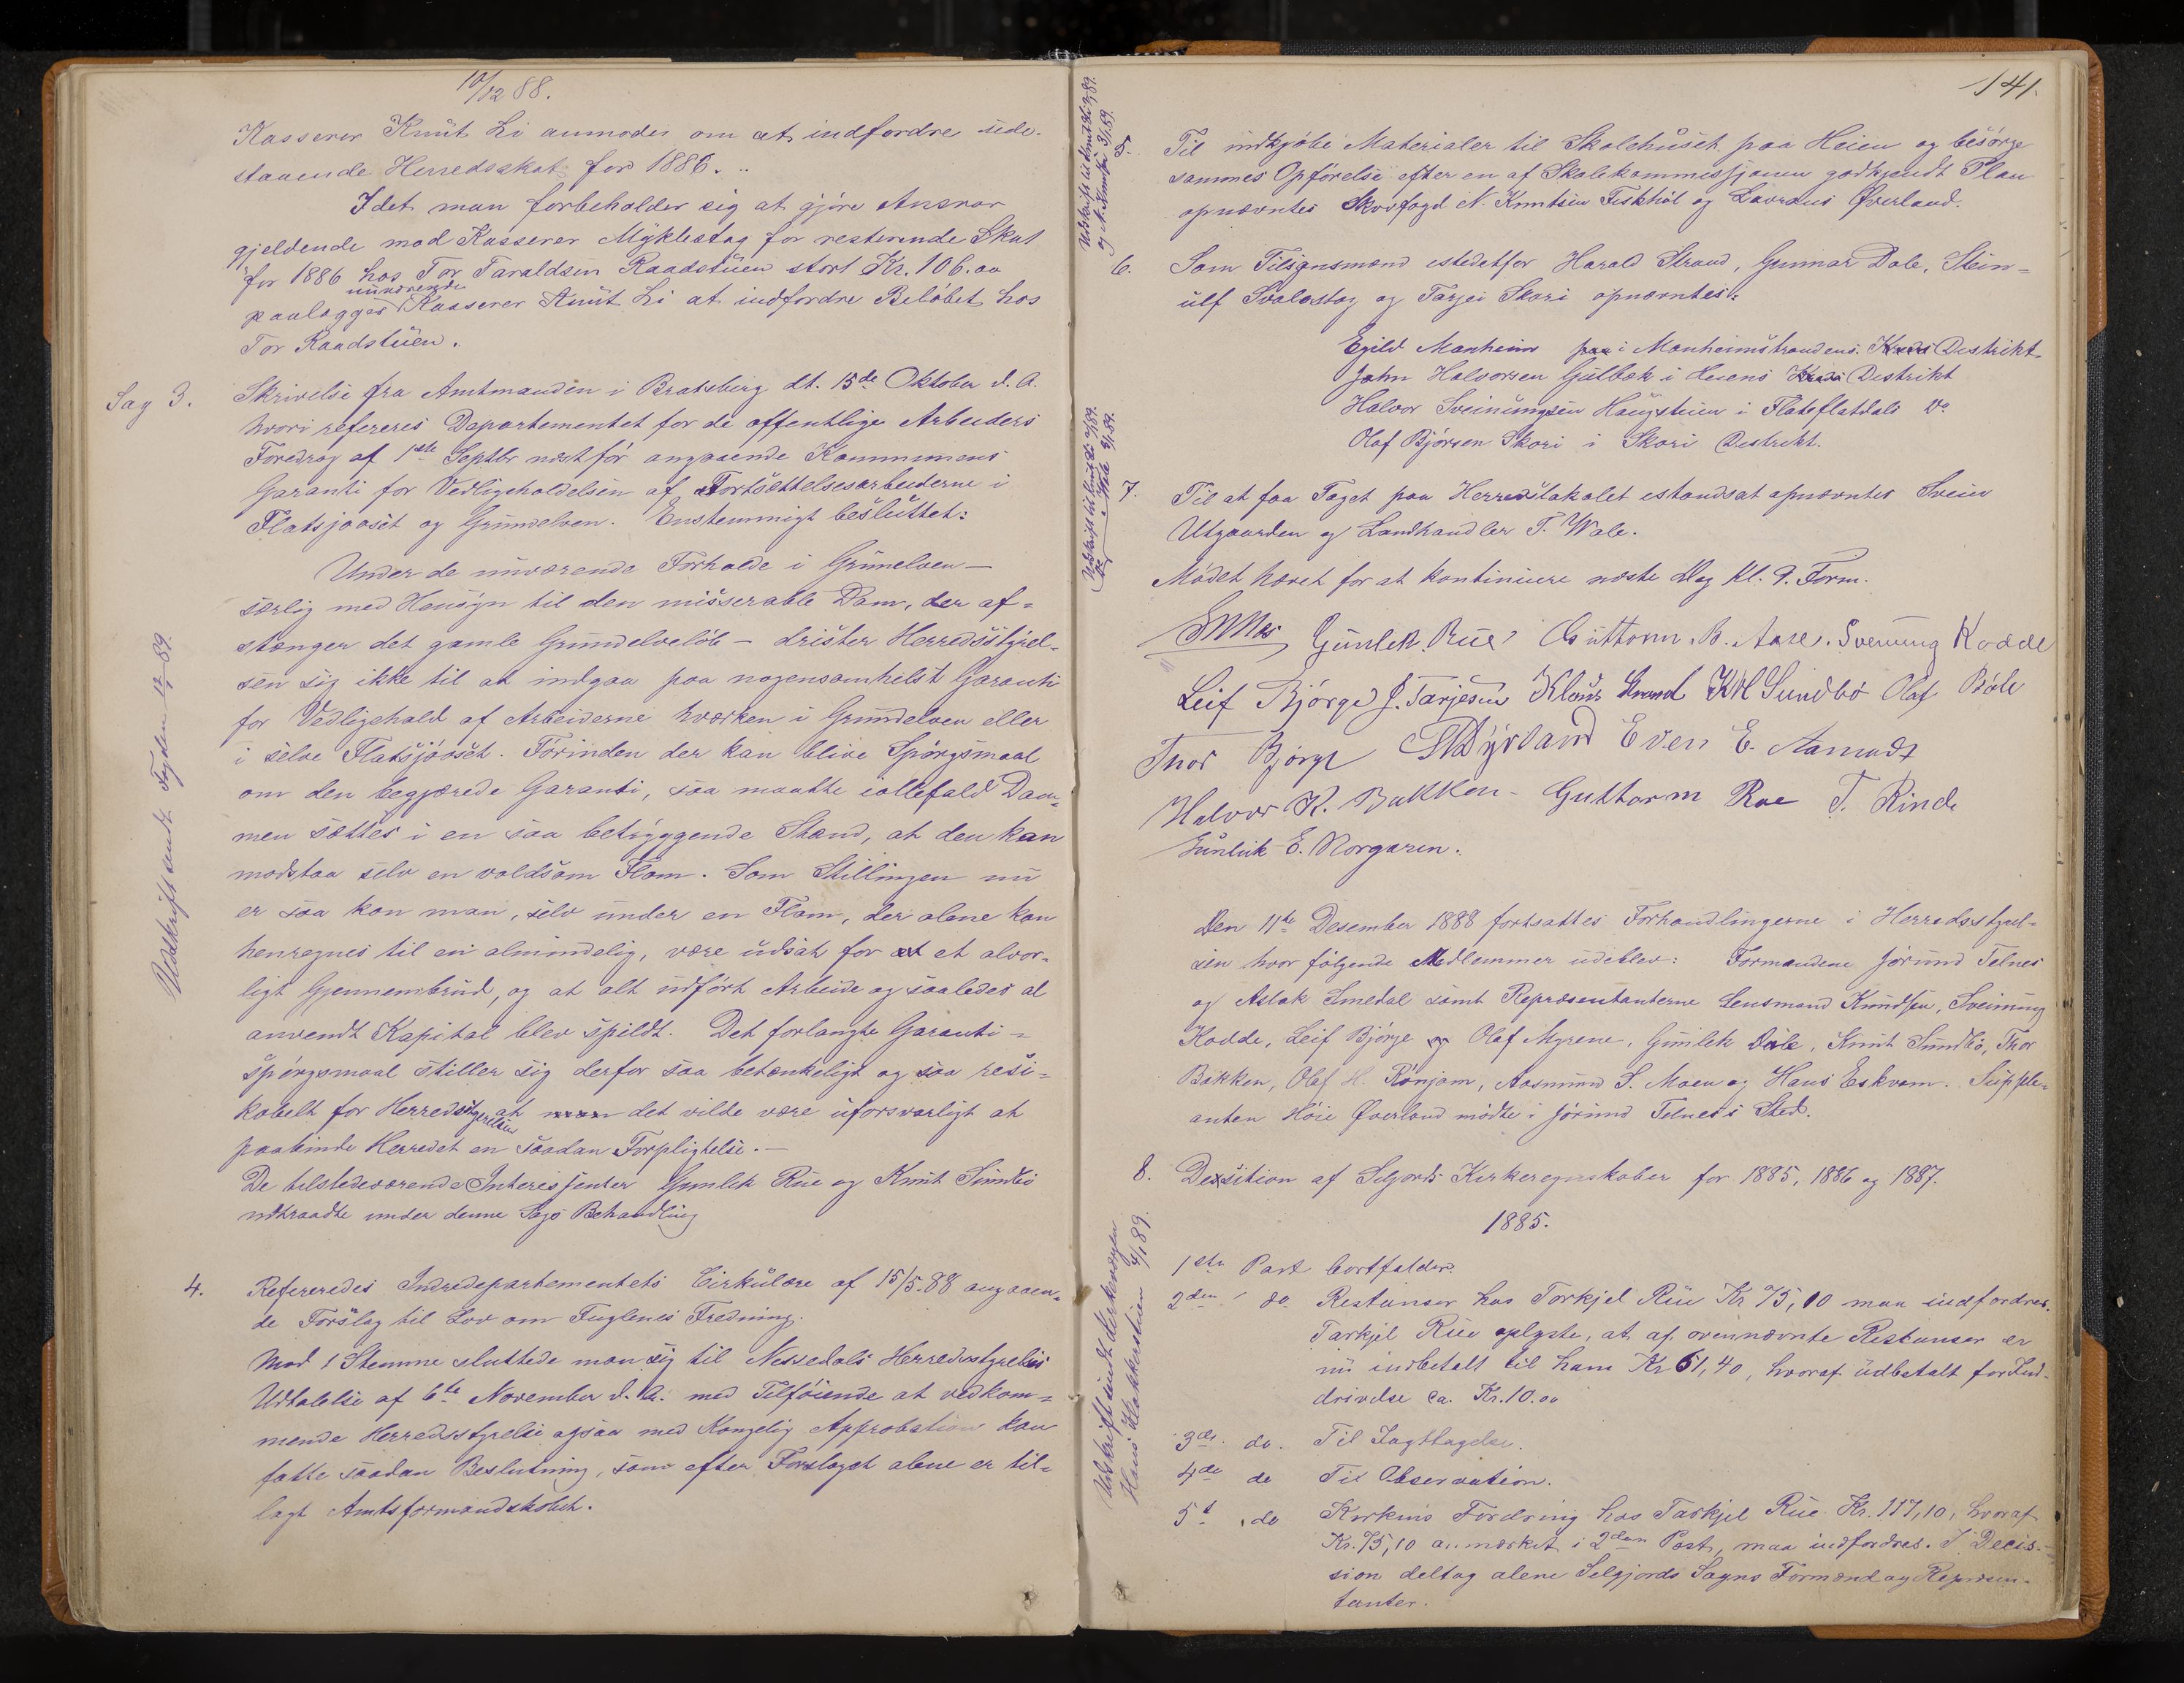 10/12 88.
Kasserer Knut Li anmodes om at indfordre ude-
staaende Herredsskat for 1886.
Idet man forbeholder sig at gjöre Ansvar
gjeldende mod Kasserer Myklestøg for resterende Skat
for 1886 hos Tor Taraldsen Raadstuen stort Kr. 106.00
paalægges nuværende Kasserer Knut Li at indfordre Belöbet hos
Tor Raadstuen.
Sag 3. Skrivelse fra Amtmanden i Bratsberg dt. 15de Oktober d. A.
hvori refereres Departementet for de offentlige Arbeiders
Foredrag af 1ste Septbr næstför angaaende Kommunens
Garanti for Vedligeholdelsen af Fortsættelsesarbeiderne i
Flatsjøoset og Grundelven. Enstemmigt besluttet:
Under de nuværende Forholde i Grunelven —
særlig med Hensyn til den misserable Dam, der af=
stænger det gamle Grundelvelöb — drister Herredsstyrel-
sen sig ikke til at indgaa paa nogensomhelst Garanti
for Vedligehold af Arbeiderne hverken i Grundelven eller
i selve Flatsjöoset. Förinden der kan blive Spörgsmaal
om den begjærede Garanti, saa maatte iallefald Dam-
men sættes i en saa betryggende Stand, at den kan
modstaa selv en voldsom Flom. Som Stillingen nu
er saa kan man, selv under en Flom, der alene kan
henregnes til en almindelig, være udsat for at et alvor-
ligt Gjennembrud, og at alt udfört Arbeide og saaledes al
anvendt Kapital blev spildt. Det forlangte Garanti=
spörgsmaal stiller sig derfor saa betænkeligt og saa resi=
kabelt for Herredsstyrelsen at det vilde være uforsvarligt at
paabinde Herredet en saadan Forpligtelse.—
De tilstedeværende Interessenter Gunlek Rue og Knut Sundbö
udtraadte under denne Sags Behandling
Udskrift sendt Fogden 89.
4. Refereredes Indredepartementets Cirkulære af 15/5.88 angaaen-
de Forslag til Lov om Fuglenes Fredning.
Mod 1 Stemme sluttede man sig til Nissedals Herredsstyrelses
Udtalelse af 6te November d. A. med Tilföiende at vedkom=
mende Herredsstyrelse ogsaa med Kongelig Approbation kan
fatte saadan Beslutning, som efter Forslaget alene er til=
lagt Amtsformandskabet.
141.
5. Til indkjöbe Materialer til Skolehuset paa Heien og besörge
sammes Opförelse efter en af Skolekommissjonen godkjendt Plan
opnævntes Skovfogd N. Knutsen Fiskhöl og Lavrans Øverland.
6. Som Tilsynsmænd istedetfor Harald Strand, Gunnar Dale, Stein=
ulf Svalestøg og Tarjei Skori opnævntes:
Egild Manheim i Manheimstrandens Distrikt
John Halvorsen Gulbæk i Heiens Distrikt
Halvor Sveinungsen Haugstuen i Flateflatdals Do
Olaf Björsen Skori i Skori Distrikt.
7. Til at faa Taget paa Herredslokalet istandsat opnævntes Svein
Utgaarden og Landhandler T. Wale.
Mödet hævet for at kontinuere næste Dag Kl. 9. Form.
Gunlek Rue Guttorm B. Aase. Sveinung Kodde
Leif Björge J. Tarjesen Klaus Strand KH Sundbö Olaf Böle
Thor Björge Dyrland Even E. Aamodt
Halvor K. Bakken - Guttorm Roe T. Rinde
Gunleik E. Norgaren.
Den 11te Desember 1888 fortsattes Forhandlingerne i Herredsstyrel-
sen hvor fölgende Medlemmer udeblev: Formændene Jörund Telnes
og Aslak Smedal samt Repræsentanterne Lensmand Knudsen, Sveinung
Kodde, Leif Björge og Olaf Myrene, Gunlek Dale, Knut Sundbö, Thor
Bakken, Olaf H. Rönjom, Aasmund S. Moen og Hans Eskvam. Supple-
anten Höie Øverland mödte i Jörund Telnes's Sted.
8. Desision af Seljords Kirkeregnskaber for 1885, 1886 og 1887.
1885.
1ste Post bortfalder.
2den do Restanser hos Torkjel Rue Kr 75,10 maa indfordres.
Tarkjel Rue oplyste, at af ovennævnte Restanser er
nu indbetalt til ham Kr 61,40, hvoraf udbetalt for Ind-
drivelse ca. Kr. 10.00
3de do. Til Iagttagelse.
4de do Til Observation.
5t do Kirkens Fordring hos Tarkjel Rue Kr. 117,10, hvoraf
Kr. 75,10 anmærket i 2den Post, maa indfordres. I Decis-
sion deltog alene Seljords Sogns Formænd og Repræsen-
tanter.